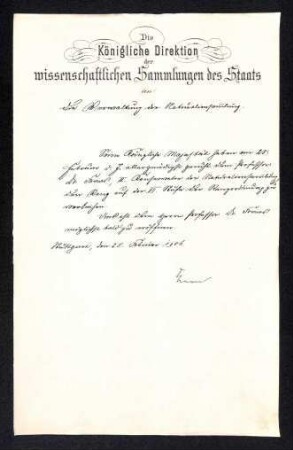 Die
Königliche Direktion
der
wissenschaftlichen Sammlungen des Staats
an
die Verwaltung der Naturaliensammlung
Seine Königliche Majestät haben am 25.
Februar d. J. allergnädigst geruht dem Professor
Dr. Fraas, II. Konservator der Naturaliensammlung
den Rang auf der VI. Stufe der Rangordnung zu
verleihen
dem Herrn Professor Dr. Fraas
möglichst bald zu eröffnen
Stuttgart, den 28. Februar 1906